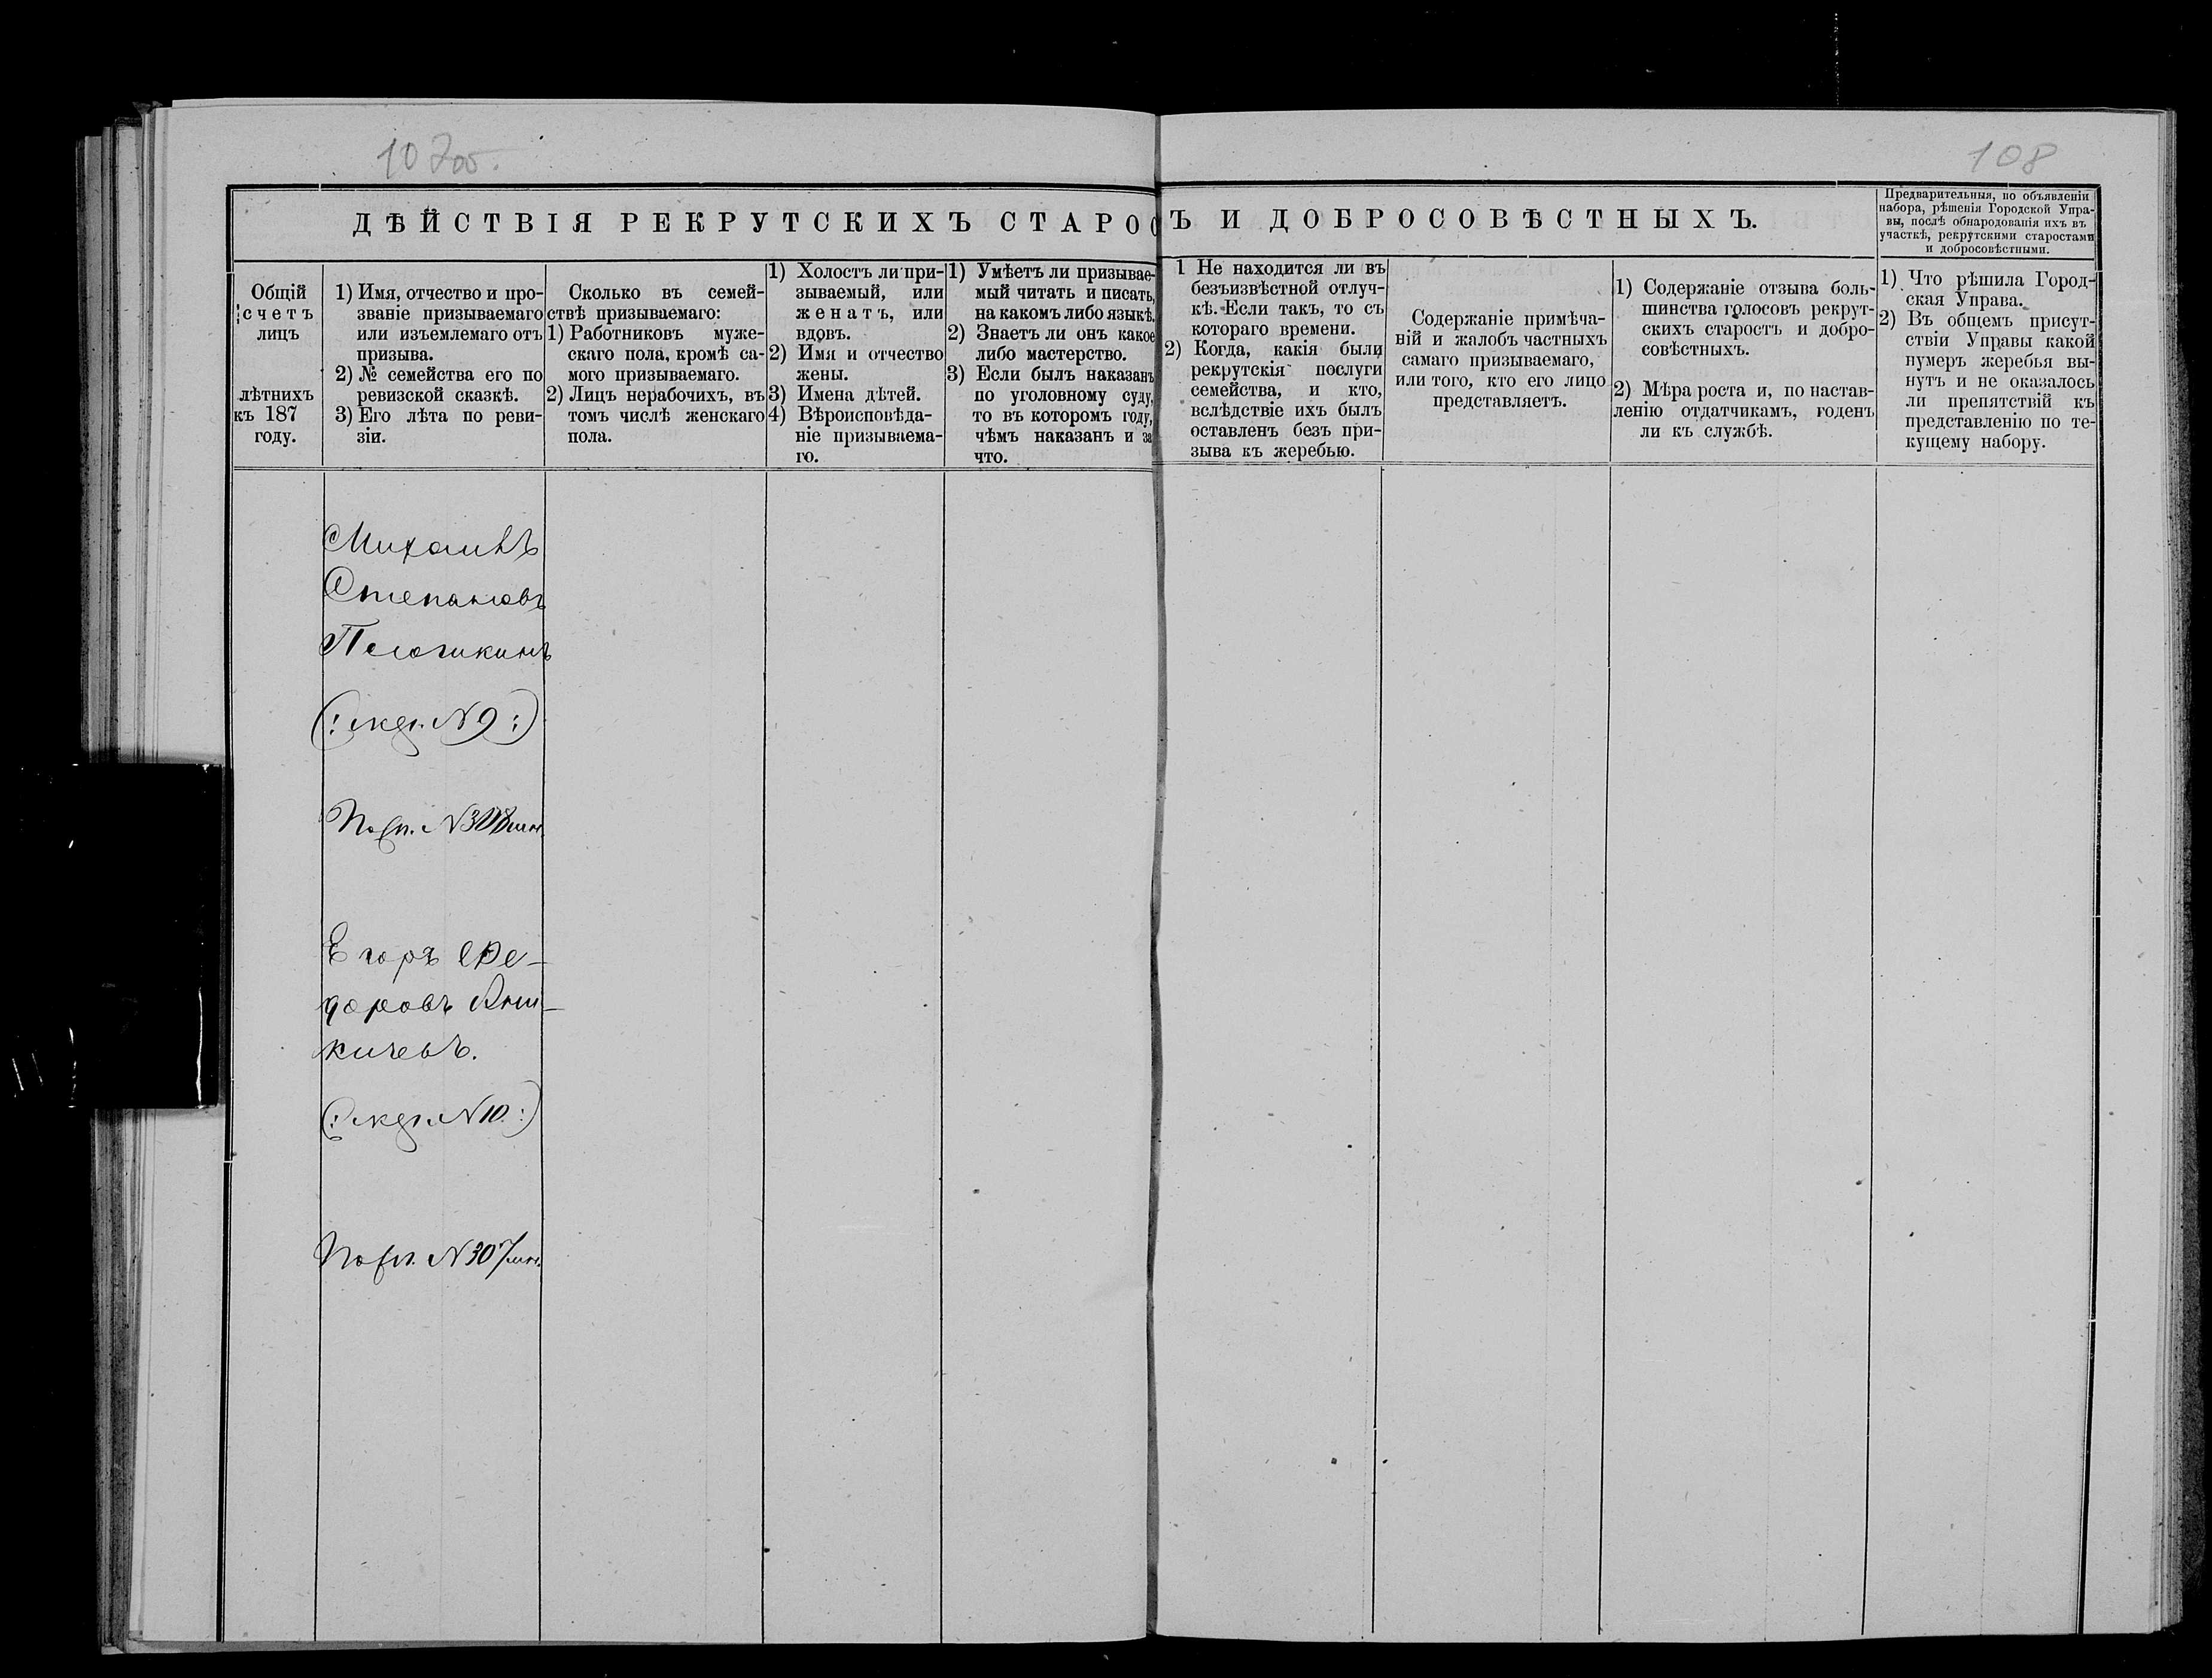 107об.
108
ДѢЙСТВІЯ РЕКРУТСКИХЪ СТАРОС
Ъ И ДОБРОСОВѢСТНЫХЪ.
Предварительныя, по объявленіи
набора, рѣшенія Городской Упра-
вы, послѣ обнародованія ихъ въ
участкѣ, рекрутскими старостами
и добросовѣстными.
Общій
счетъ
лицъ
лѣтнихъ
къ 187
году.
1) Имя, отчество и про-
званіе призываемаго
или изъемлемаго отъ
призыва.
2) № семейства его по
ревизской сказкѣ.
3) Его лѣта по реви-
зіи.
Сколько въ семей-
ствѣ призываемаго:
1) Работниковъ муже-
скаго пола, кромѣ са-
мого призываемаго.
2) Лицъ нерабочихъ, въ
томъ числѣ женскаго
пола.
1) Холостъ ли при-
зываемый, или
женатъ, или
вдовъ.
2) Имя и отчество
жены.
3) Имена дѣтей.
4) Вѣроисповѣда-
ніе призываема-
го.
1) Умѣетъ ли призывае-
мый читать и писать,
на какомъ либо языкѣ.
2) Знаетъ ли онъ какое
либо мастерство.
3) Если былъ наказанъ
по уголовному суду,
то въ которомъ году,
чѣмъ наказанъ и за
что.
1 Не находится ли въ
безъизвѣстной отлуч-
кѣ. Если такъ, то съ
котораго времени.
2) Когда, какія были
рекрутскія послуги
семейства, и кто,
вслѣдствіе ихъ былъ
оставленъ безъ при-
зыва къ жеребью.
Содержаніе примѣча-
ній и жалобъ частныхъ
самаго призываемаго,
или того, кто его лицо
представляетъ.
1) Содержаніе отзыва боль-
шинства голосовъ рекрут-
скихъ старостъ и добро-
совѣстныхъ.
2) Мѣра роста и, по настав-
ленію отдатчикамъ, годенъ
ли къ службѣ.
1) Что рѣшила Город-
ская Управа.
2) Въ общемъ присут-
ствіи Управы какой
нумеръ жеребья вы-
нутъ и не оказалось
ли препятствій къ
представленію по те-
кущему набору.
Михаилъ
Степановъ
(: N 9 :)
N 308
Егоръ Ѳе-
доровъ Ани-
кичевъ.
(: N 10 :)
N 307